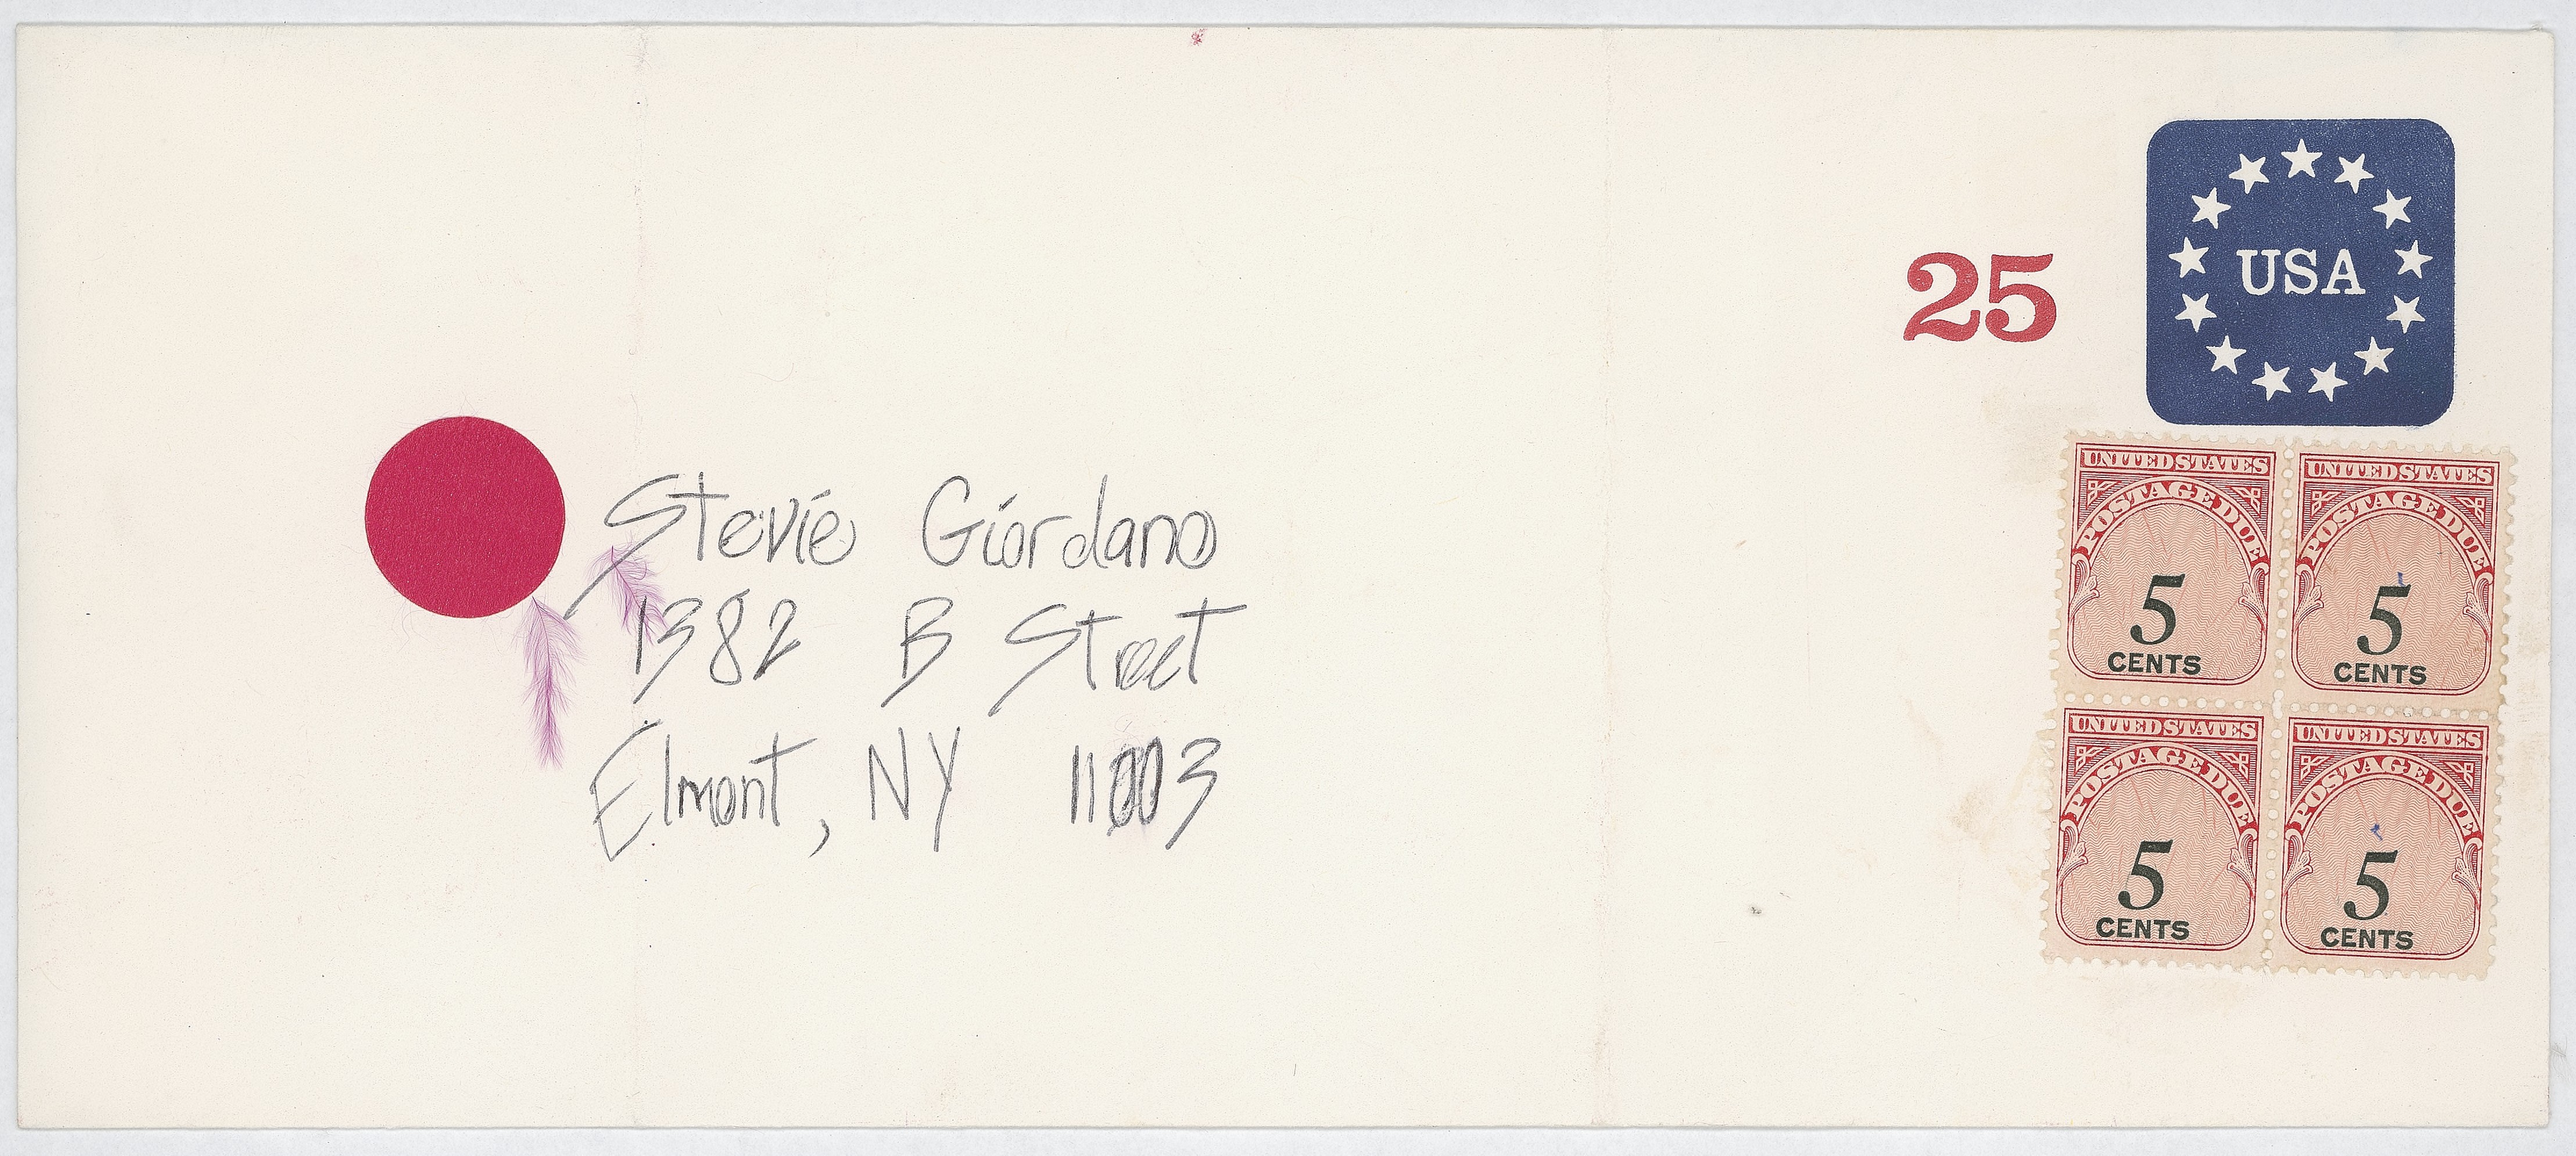 25
USA
UNITED STATES
POSTAGE DUE
5
CENTS
UNITED STATES
POSTAGE DUE
5
CENTS
UNITED STATES
POSTAGE DUE
5
CENTS
UNITED STATES
POSTAGE DUE
5
CENTS
Stevie Giordano
1382 B Street
Elmont, NY 11003